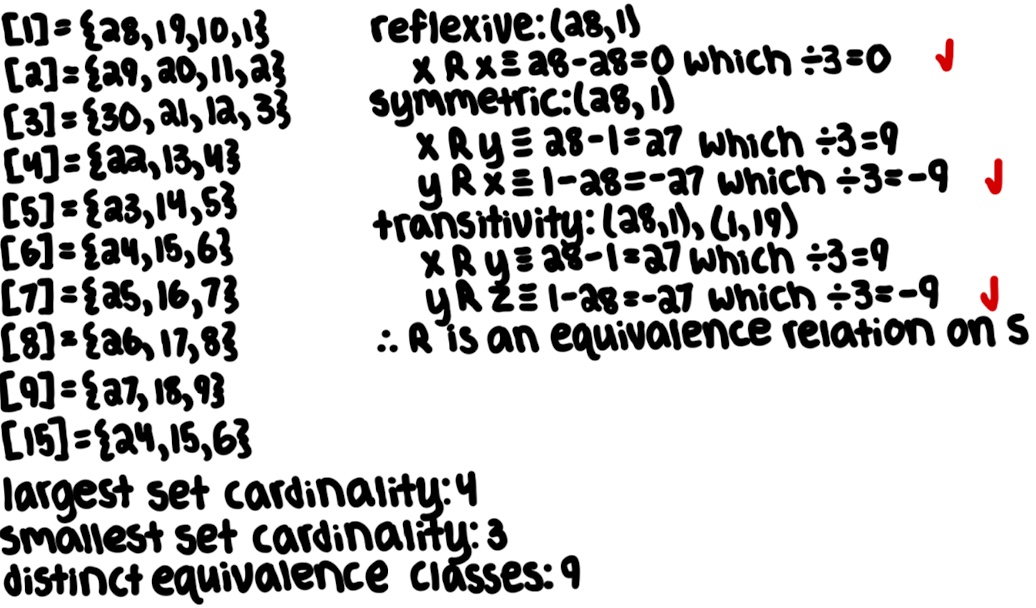 [1]={28,19,10,1}
[2]={29,20,11,2}
[3]={30,21,12,3}
[4]={22,13,4}
[5]={23,14,5}
[6]={24,15,6}
[7]={25,16,7}
[8]={26,17,8}
[9]={27,18,9}
[15]={24,15,6}
largest set cardinality:4
smallest set cardinality:3
distinct equivalence classes:9
reflexive:(28,1)
x R x≡28-28=0 which ÷3=0 ✓
symmetric:(28,1)
x R y≡28-1=27 which ÷3=9
y R x≡1-28=-27 which ÷3=-9 ✓
transitivity:(28,1),(1,19)
x R y≡28-1=27 which ÷3=9
y R z≡1-28=-27 which ÷3=-9 ✓
∴ R is an equivalence relation on S